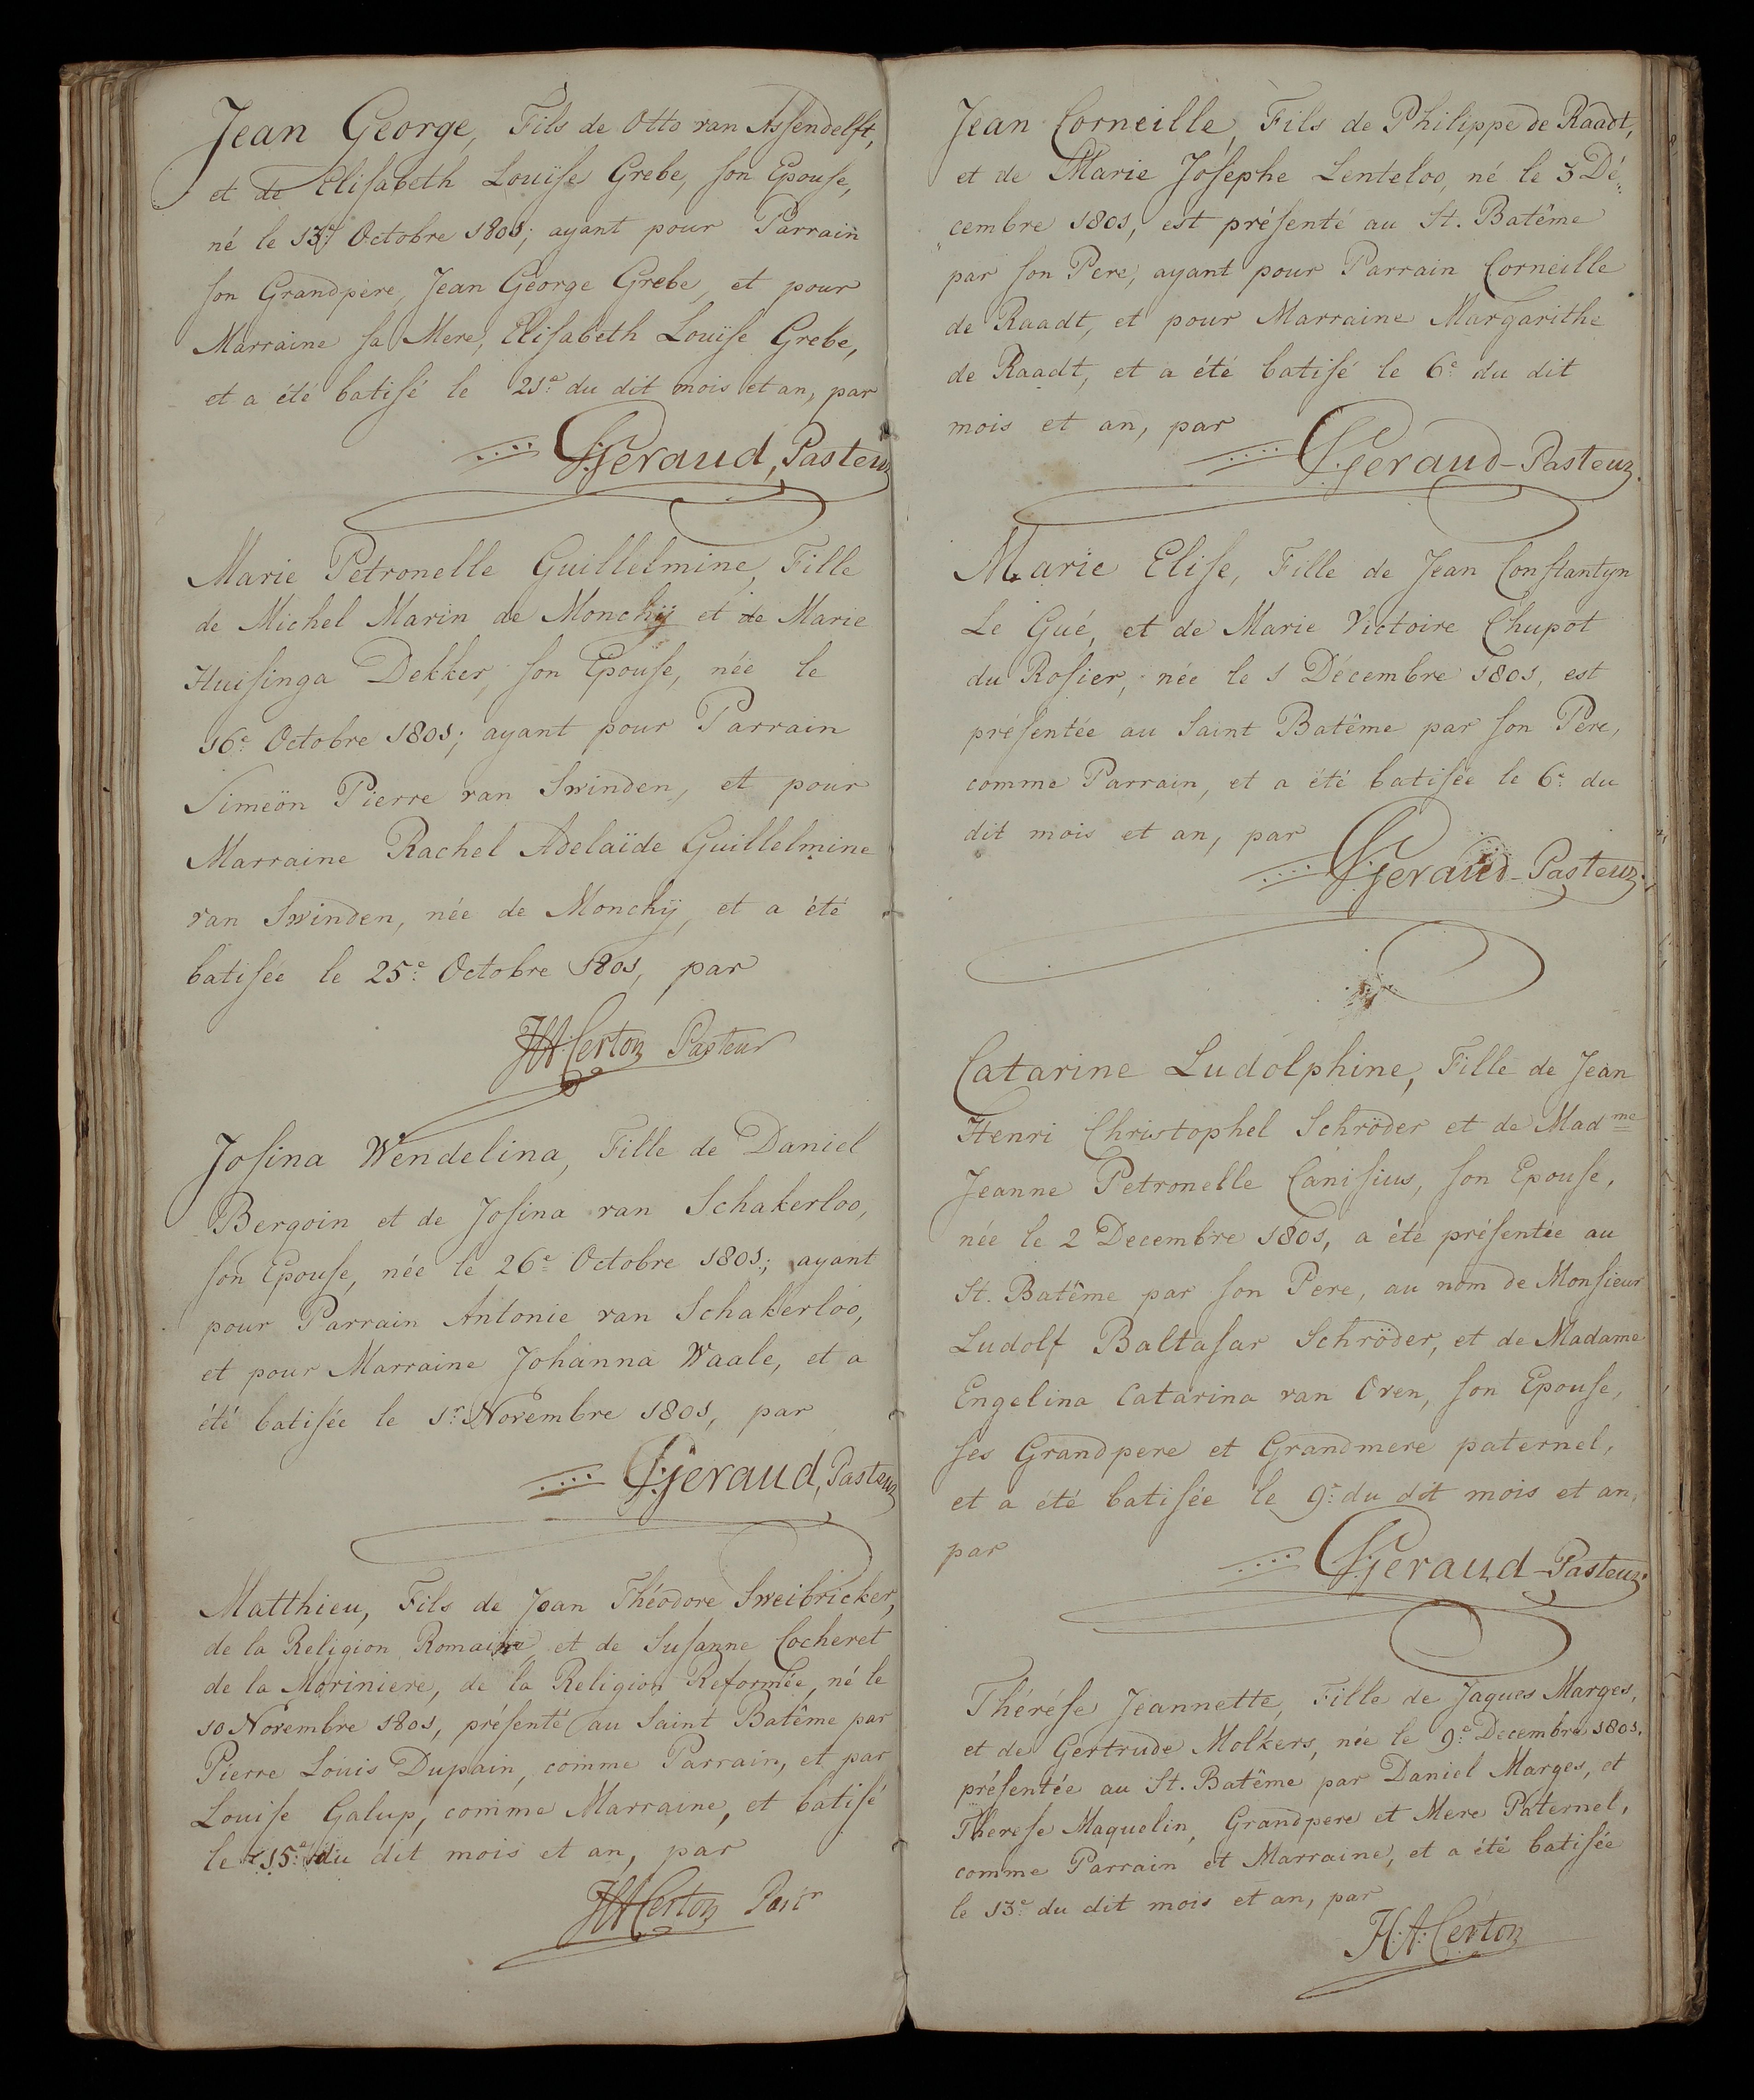 Jean George, Fils de Otto van Assendelft,
et de Elisabeth Louïse Grebe, son Epouse,
né le 13e Octobre 1801; ayant pour Parrain
son Grandpère, Jean George Grebe, et pour
Marraine sa Mere, Elisabeth Louïse Grebe,
et a été batisé le 21e du dit mois et an, par
Geraud, Pasteur
Marie Petronelle Guillelmine, Fille
de Michel Marin de Monchÿ et de Marie
Huisinga Dekker, son Epouse, née le
16e Octobre 1801; ayant pour Parrain
Simeön Pierre van Swinden, et pour
Marraine Rachel Adelaïde Guillelmine
van Swinden, née de Monchÿ, et a été
batisée le 25e Octobre 1801, par
HACerton Pasteur
Josina Wendelina, Fille de Daniel
Bergoin et de Josina van Schakerloo,
son Epouse, née le 26e Octobre 1801; ayant
pour Parrain Antonie van Schakerloo,
et pour Marraine Johanna Waale, et a
été batisée le 1r Novembre 1801, par
Geraud, Pasteur
Matthieu, Fils de Jean Théodore Sweibricker,
de la Religion Romaine, et de Susanne Cocheret
de la Moriniere, de la Religion Reformée, né le
10 Novembre 1801, présenté au Saint Batême par
Pierre Louis Dupain, comme Parrain, et par
Louise Galup, comme Marraine, et batisé
le 15e du dit mois et an, par
HACerton Past
Jean Corneille, Fils de Philippe de Raadt,
et de Marie Josephe Lenteloo, né le 3 Dé„
„cembre 1801, est présenté au St. Batême
par son Pere, ayant pour Parrain Corneille
de Raadt, et pour Marraine Margarithe
de Raadt, et a été batisé le 6e du dit
mois et an, par
Geraud - Pasteur.
Marie Elise, Fille de Jean Constantyn
Le Gué, et de Marie Victoire Chupot
du Rosier, née le 1 Décembre 1801, est
présentée au Saint Batême par son Pere,
comme Parrain, et a été batisée le 6e du
dit mois et an, par
Geraud - Pasteur.
Catarine Ludolphine, Fille de Jean
Henri Christophel Schröder et de Madme
Jeanne Petronelle Canisius, son Epouse,
née le 2 Decembre 1801, a été présentée au
St. Batême par son Pere, au nom de Monsieur
Ludolf Baltasar Schröder, et de Madame
Engelina Catarina van Oven, son Epouse,
ses Grandpere et Grandmere paternel,
et a été batisée le 9e du dit mois et an,
par
Geraud - Pasteur.
Thérése Jeannette, Fille de Jaques Marges,
et de Gertrude Molkers, née le 9e Decembre 1801,
présentée au St. Batême par Daniel Marges, et
Therese Maquelin, Grandpere et Mere Paternel,
comme Parrain et Marraine, et a été batisée
le 13e du dit mois et an, par
H:A:Certon